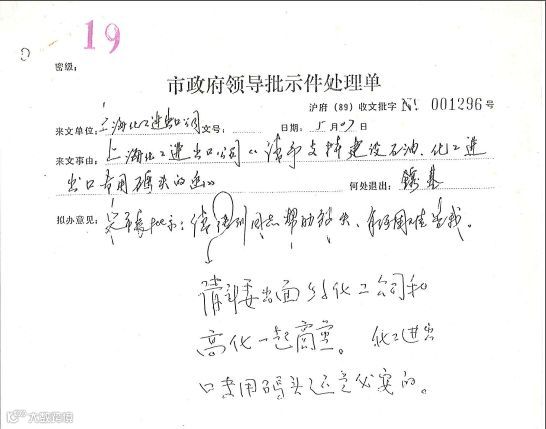 19
密级：
市政府领导批示件处理单
沪府（89）收文批字 №: 001296号
来文单位：上海化工进出口公司 文号： 日期：5月07日
来文事由：上海化工进出口公司《请市支持建设石油、化工进
出口专用码头的函》 何处退出：
拟办意见： 批示：请 同志帮助 有何困难 我。
请计委出面约化工公司和
高化一起商量。化工进出
口专用码头还是必要的。
大数跨境